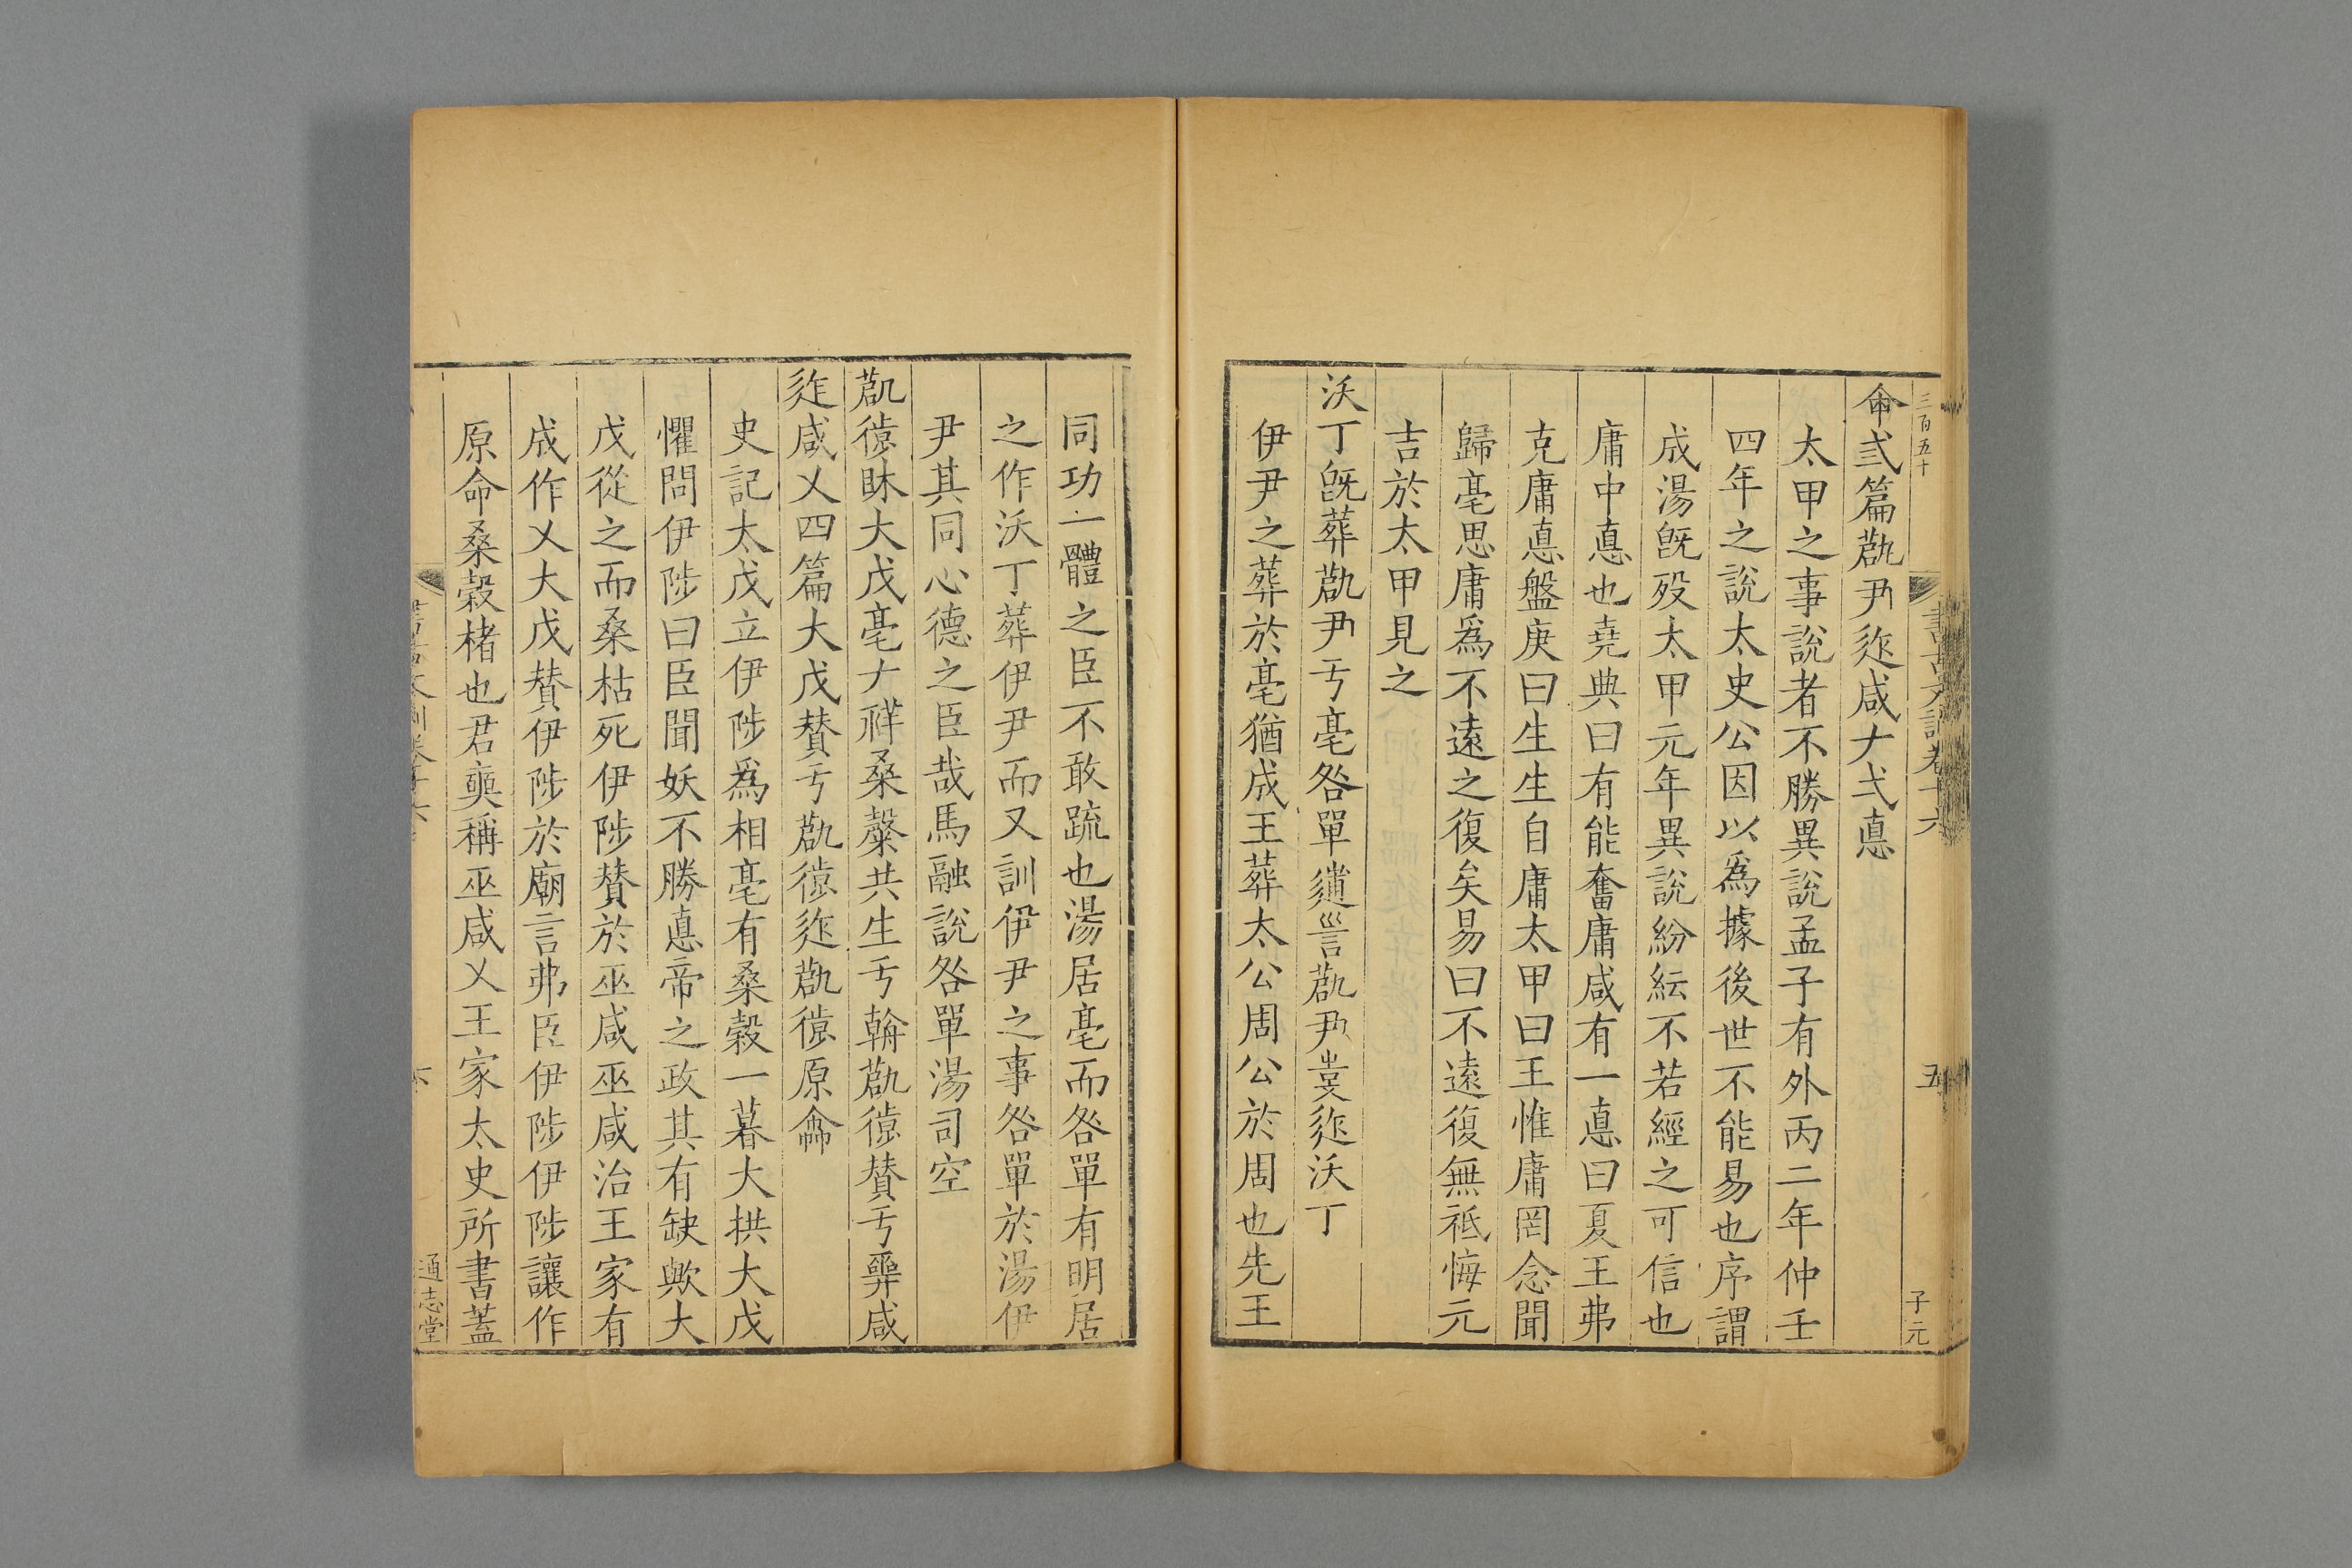 三百五十
書古文訓卷十六
五
子元
弍篇尹咸𠂇弌悳
太甲之事說者不勝異說孟子有外丙二年仲壬
四年之說太史公因以爲據後世不能易也序謂
成湯旣歿太甲元年異說紛紜不若經之可信也
庸中悳也堯典曰有能奮庸咸有一悳曰夏王弗
克庸悳盤庚曰生生自庸太甲曰王惟庸罔念聞
歸亳思庸爲不遠之復矣易曰不遠復無祗悔元
吉於太甲見之
沃丁旣葬尹亐亳咎單尹沃丁
伊尹之葬於亳猶成王葬太公周公於周也先王
同功一體之臣不敢疏也湯居亳而咎單有明居
之作沃丁葬伊尹而又訓伊尹之事咎單於湯伊
尹其同心德之臣哉馬融說咎單湯司空
大戊亳𠂇祥桑共生亐賛亐咸
咸乂四篇大戊賛亐原
史記太戊立伊陟爲相亳有桑榖一暮大拱大戊
懼問伊陟曰臣聞妖不勝悳帝之政其有缺歟大
戊從之而桑枯死伊陟賛於巫咸巫咸治王家有
成作乂大戊賛伊陟於廟言弗臣伊陟伊陟讓作
原命桑榖楮也君奭稱巫咸乂王家太史所書蓋
通志堂